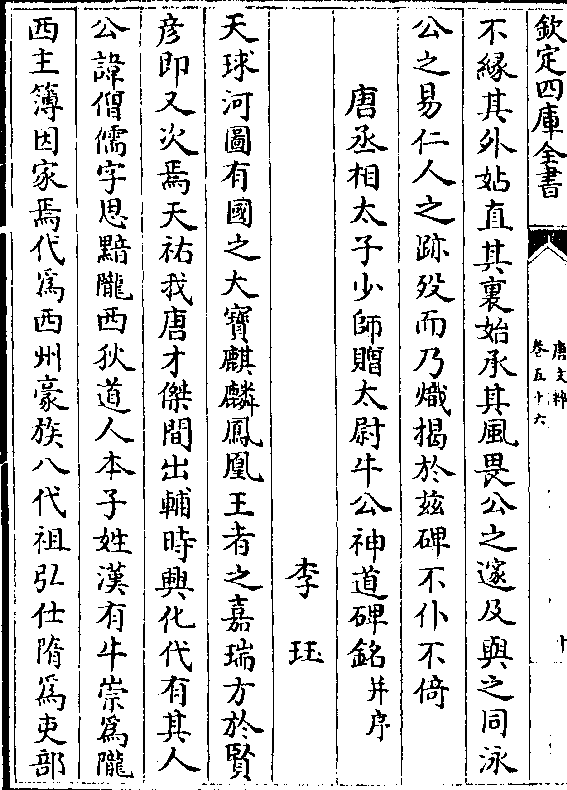 欽定四庫全書
唐文粹
卷五十六
十
不緣其外姑直其裏始承其風畏公之邃及與之同泳
公之易仁人之跡歿而乃熾揭於兹碑不仆不倚
唐丞相太子少師贈太尉牛公神道碑銘并序
李珏
天球河圖有國之大寶麒麟鳳凰王者之嘉瑞方於賢
彦即又次焉天祐我唐才傑間出輔時興化代有其人
公諱僧儒字思黯隴西狄道人本子姓漢有牛崇爲隴
西主簿因家焉代爲西州豪族八代祖弘仕隋爲吏部